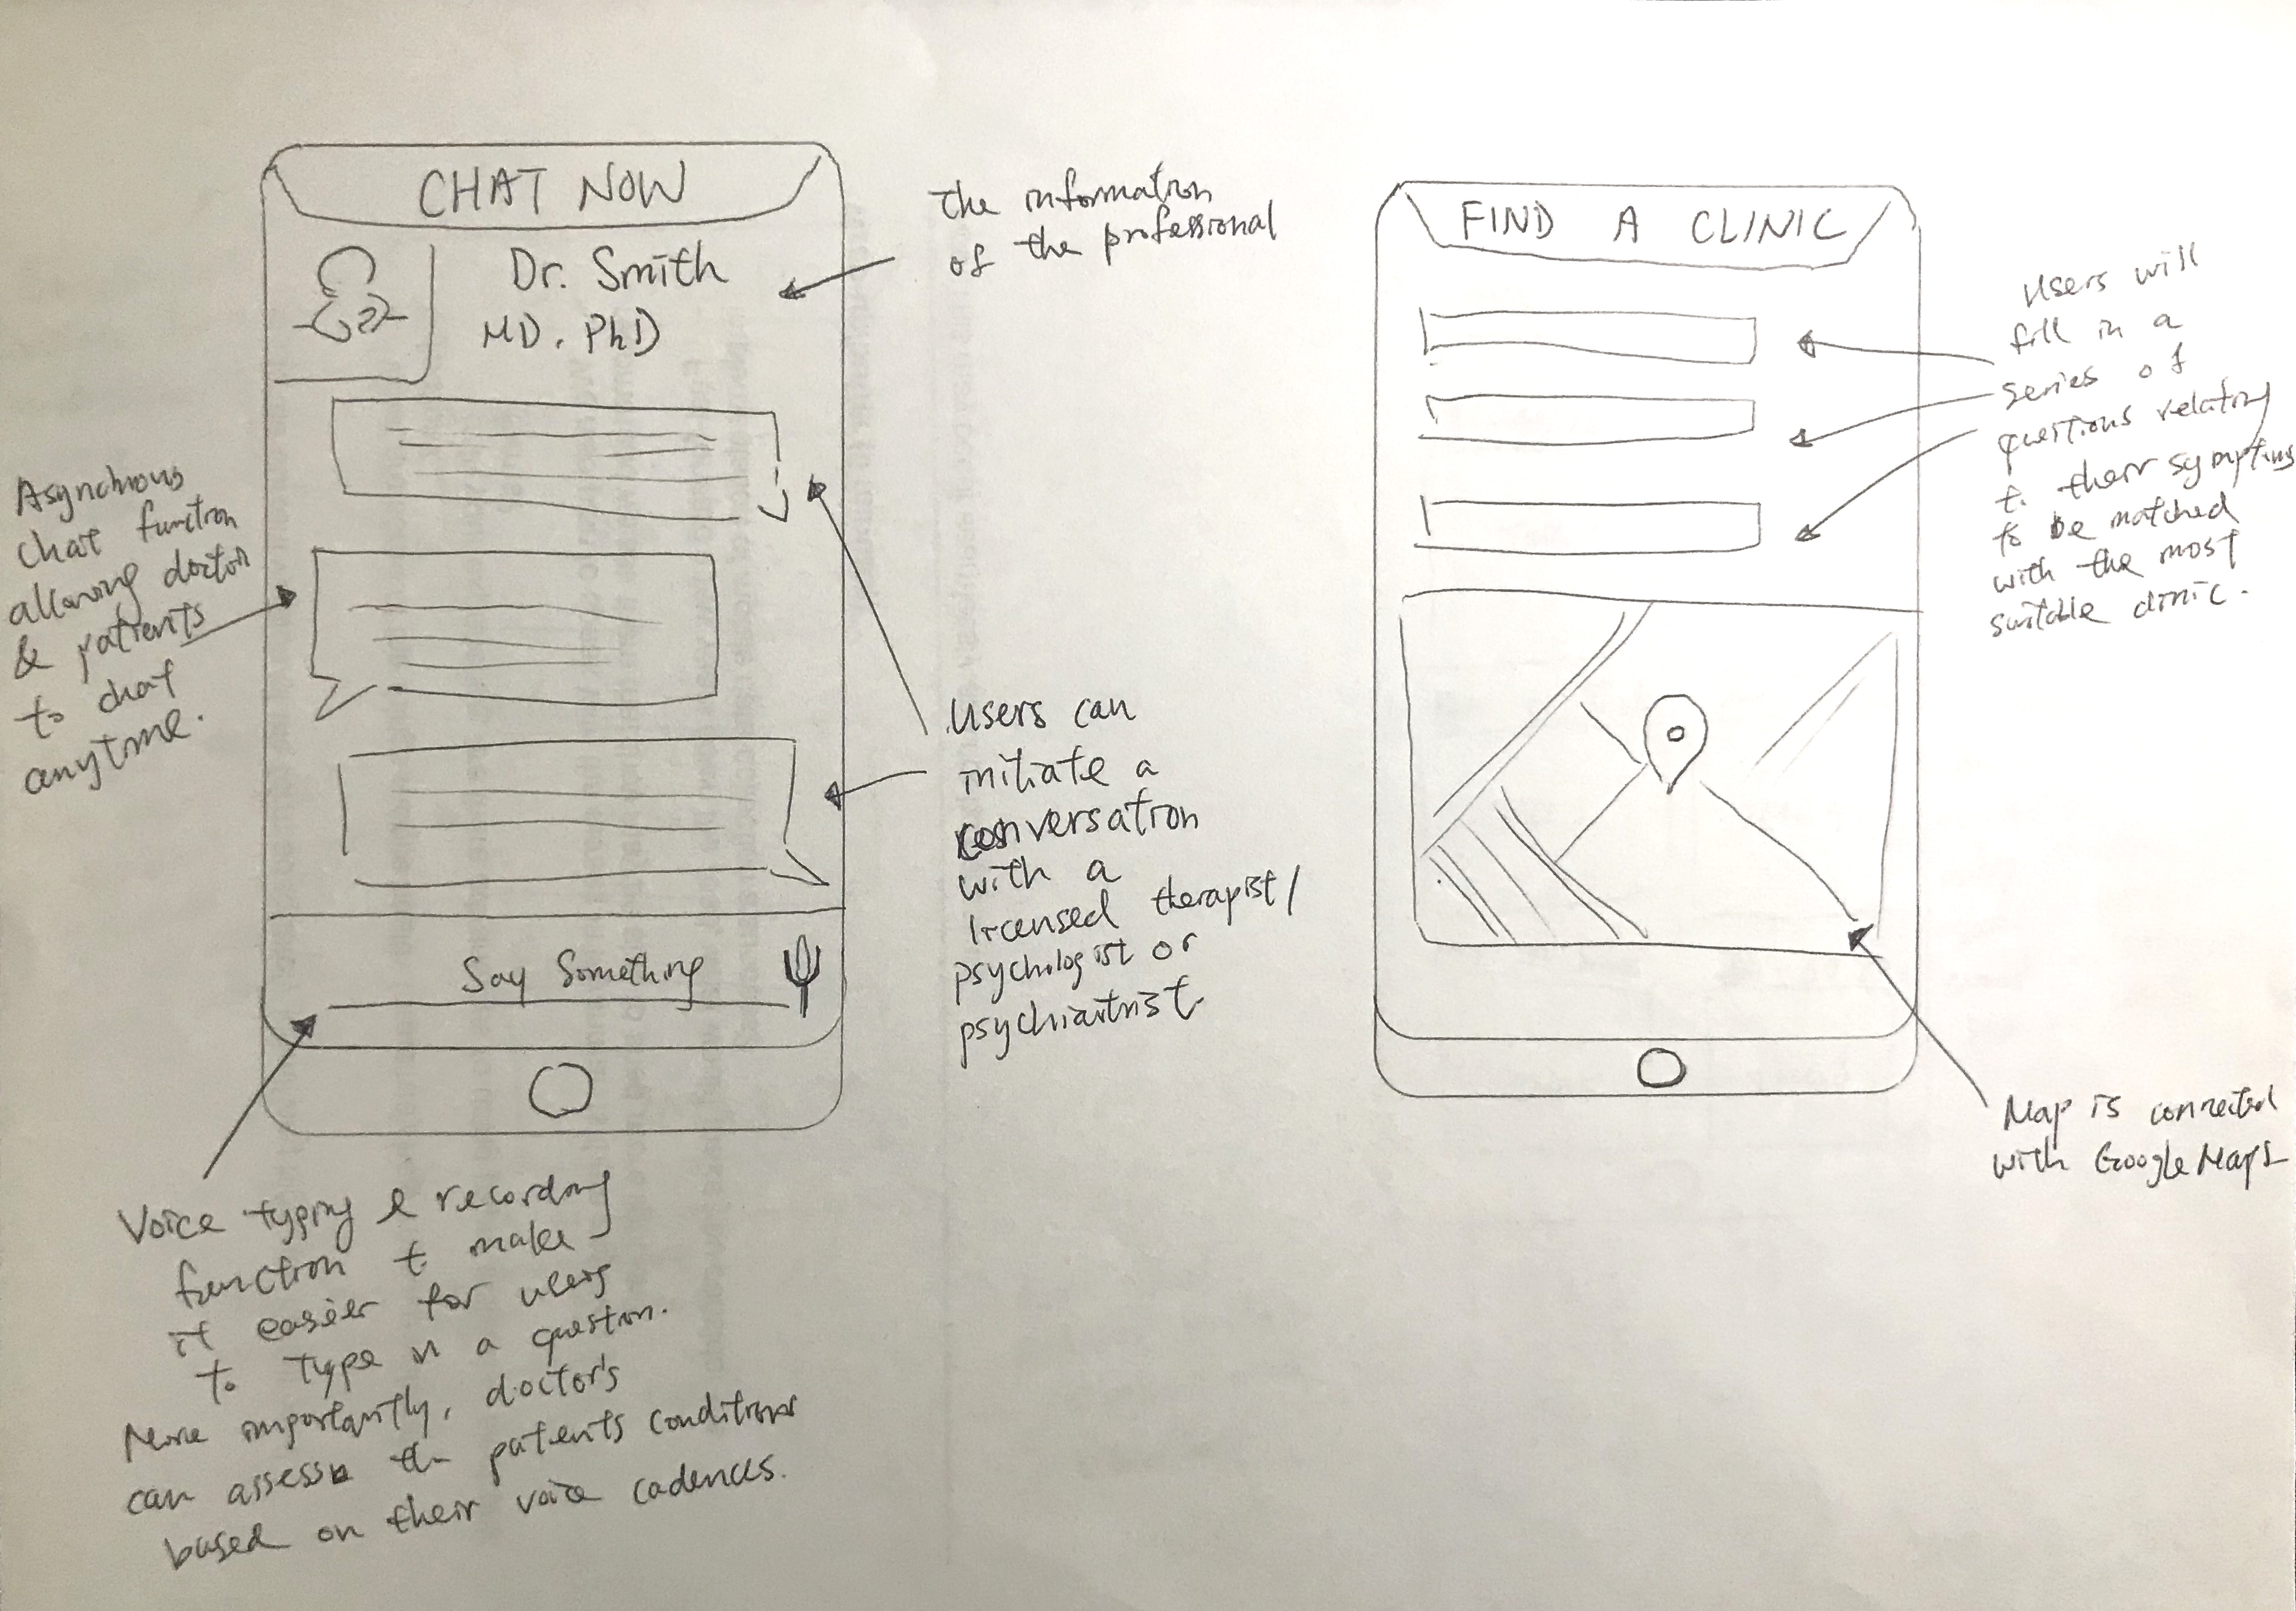 CHAT NOW
Dr. Smith
MD. PhD
Say Something
The information
of the professional
Asynchrous
chat function
allowing doctor
& patients
to chat
anytime.
Users can
initiate a
conversation
with a
licensed therapist/
psychologist or
psychiatrist
Voice typing & recording
function to make
it easier for users
to type in a question.
More importantly, doctor's
can assess the patents conditions
based on their voice cadences.
FIND A CLINIC
Users will
fill in a
series of
questions relating
to their symptoms
to be matched
with the most
suitable clinic.
Map is connected
with Google Maps